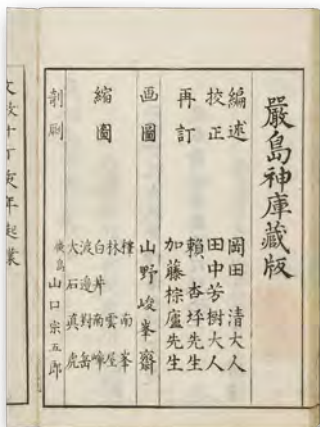 嚴島神庫藏版
編述 岡田清大人
校正 田中芳樹大人
再訂 頼杏坪先生
加藤棕廬先生
画圖 山野峻峯齋
縮圖 種南峯
林雲屋
白井南嶂
渡邊對岳
大石真虎
剞劂 廣島 山口宗五郎
文政十丁亥年起業